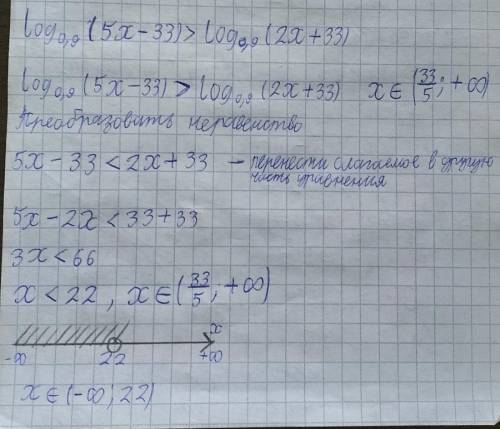 log₀,₉(5x-33)>log₀,₉(2x+33)
log₀,₉(5x-33)>log₀,₉(2x+33) x∈(33/5;+∞)
Преобразовать неравенство
5x-33<2x+33 - перенести слагаемое в другую
часть уравнения
5x-2x<33+33
3x<66
x<22, x∈(33/5;+∞)
x
-∞ 22 +∞
x∈(-∞;22)